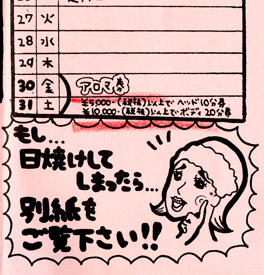 27 火
28 水
29 木
30 金 アロマ券
31 土 ¥5,000-(税抜)以上で ヘッド10分券
¥10,000-(税抜)以上で ボディ 20分券
もし...
日焼けして
しまったら...
別紙を
ご覧下さい!!